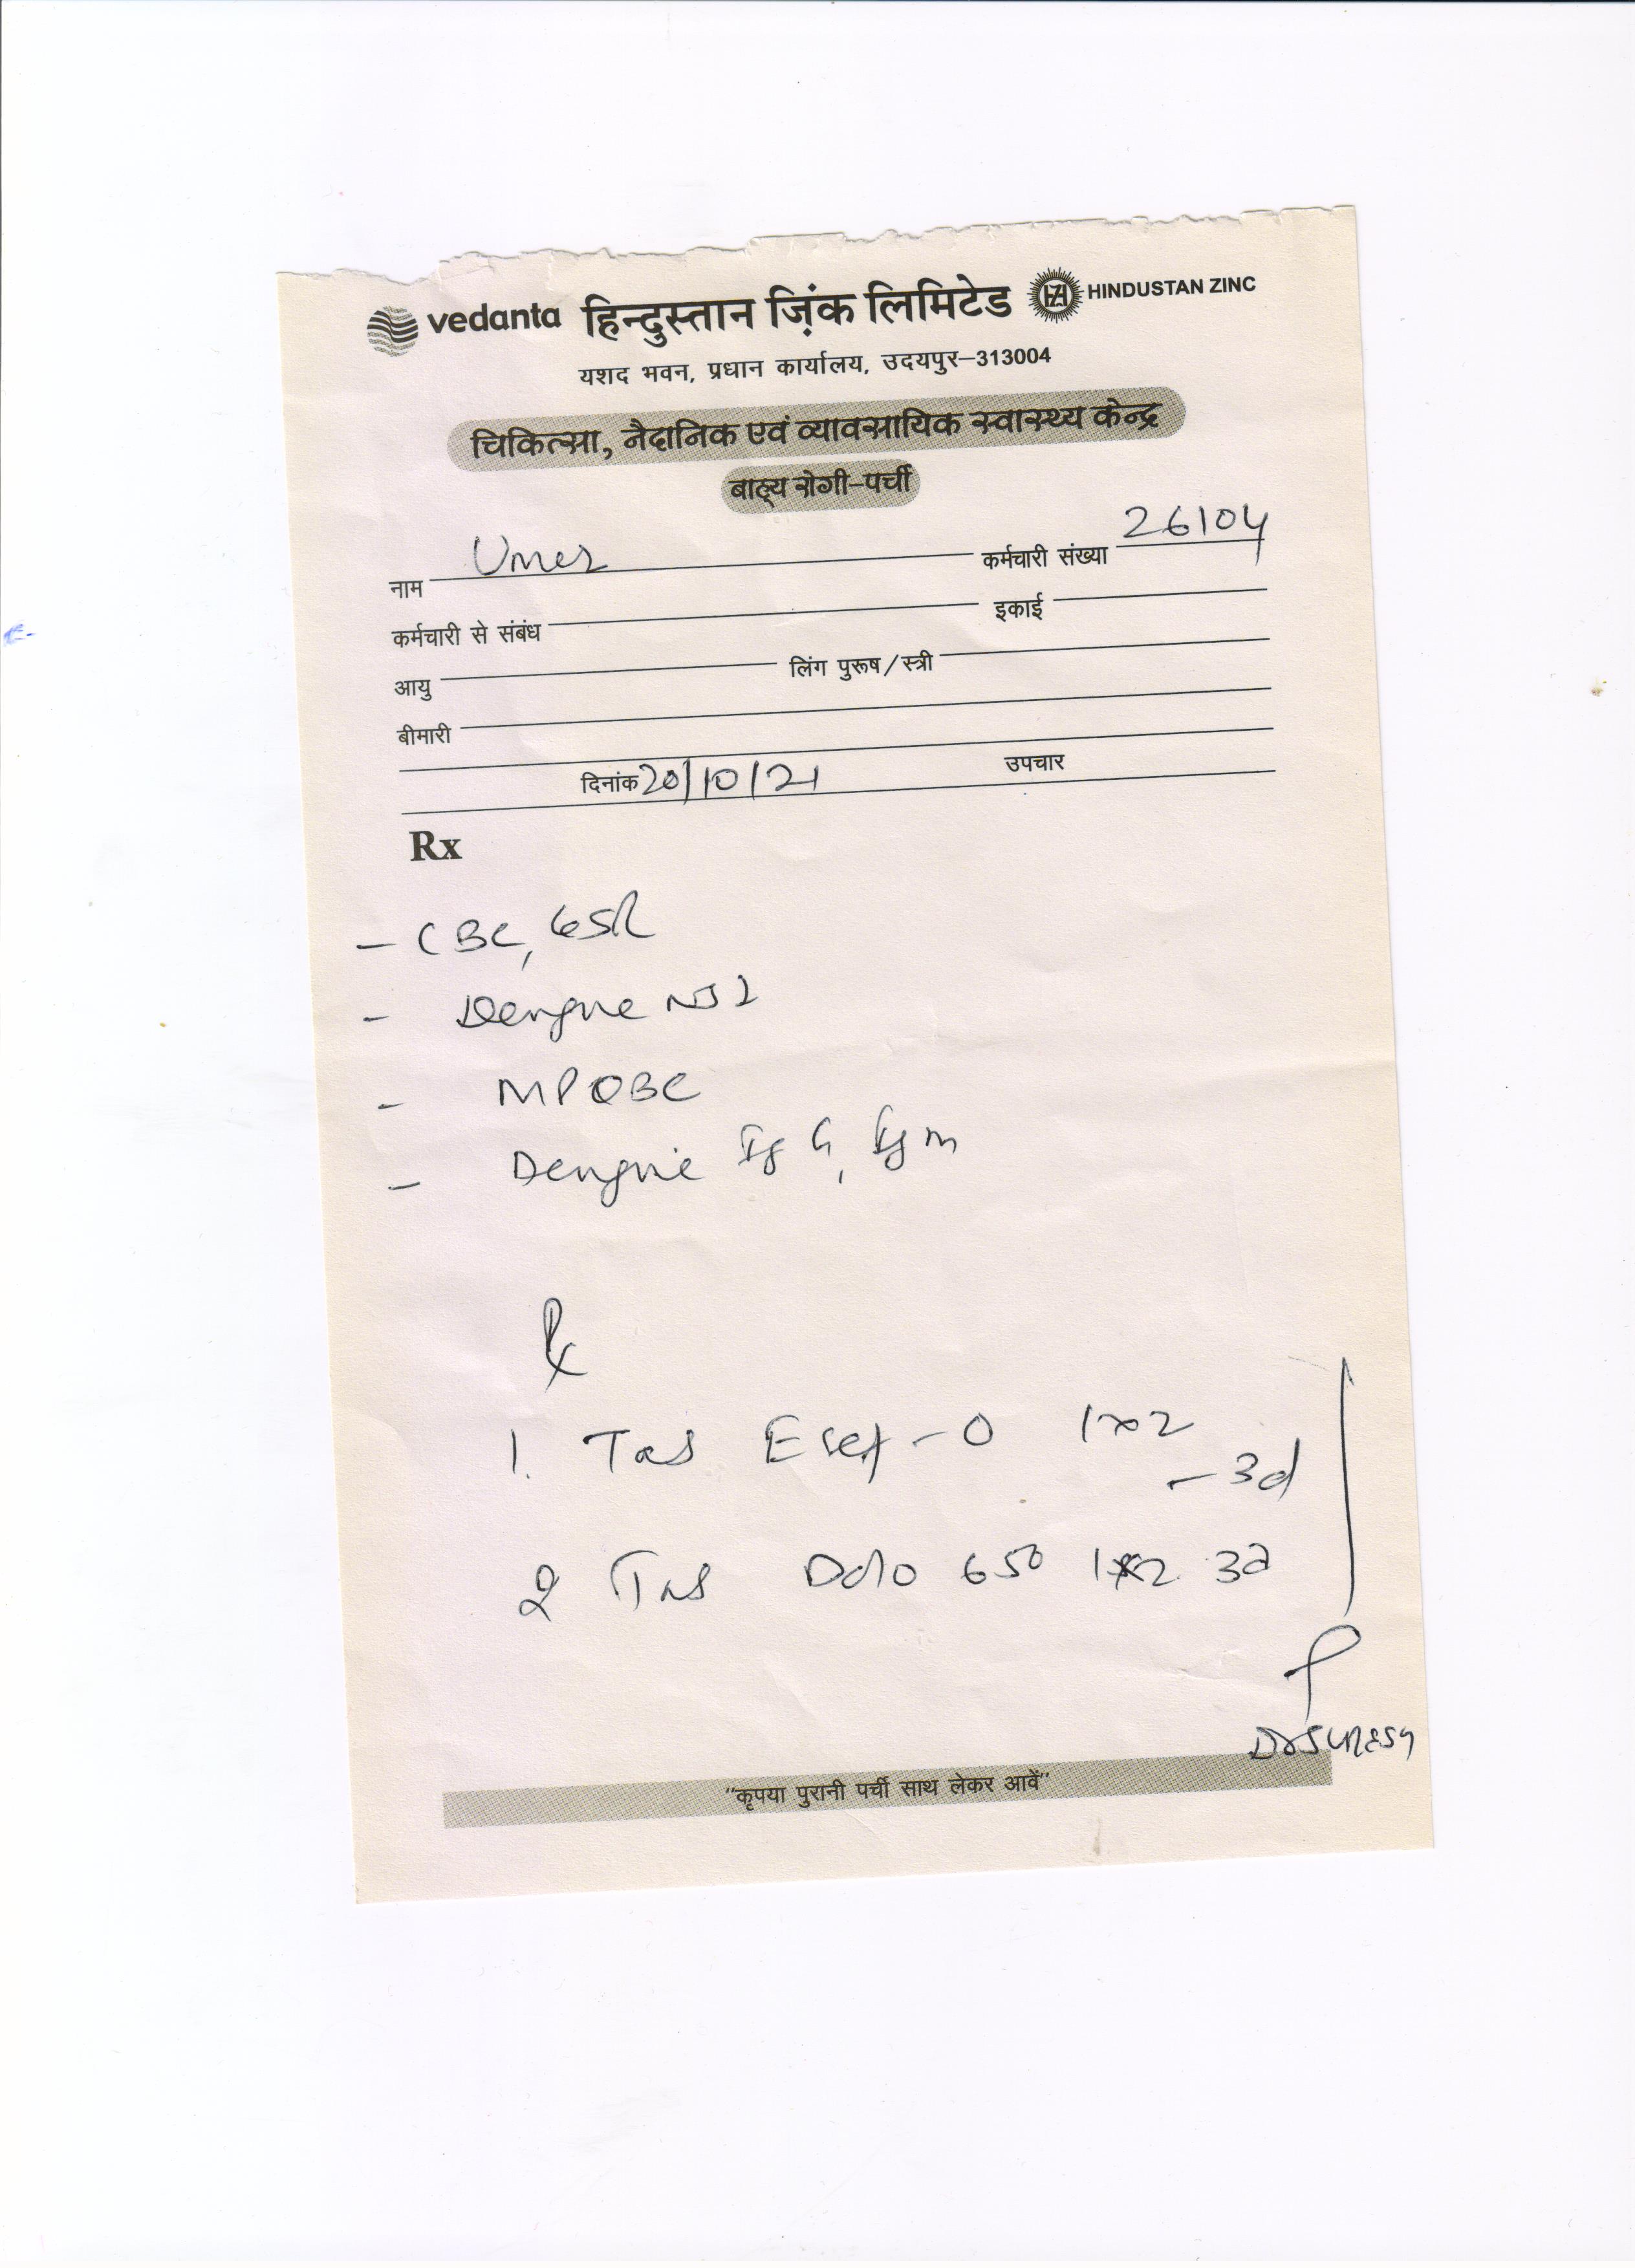 vedanta हिन्दुस्तान ज़िंक लिमिटेड HINDUSTAN ZINC
यशद भवन, प्रधान कार्यालय, उदयपुर–313004
चिकित्सा, नैदानिक एवं व्यावसायिक स्वास्थ्य केन्द्र
बाह्य रोगी–पर्ची
नाम Umer कर्मचारी संख्या 26104
कर्मचारी से संबंध इकाई
आयु लिंग पुरूष/स्त्री
बीमारी
दिनांक 20/10/21 उपचार
Rx
- CBC, ESR
- Dengue NS1
- MPQBC
- Dengue IgG, IgM
Rx
1. Tab - O 1x2
- 3d
2 Tab Dolo 650 1x2 3d
Dr SURESH
"कृपया पुरानी पर्ची साथ लेकर आवें"